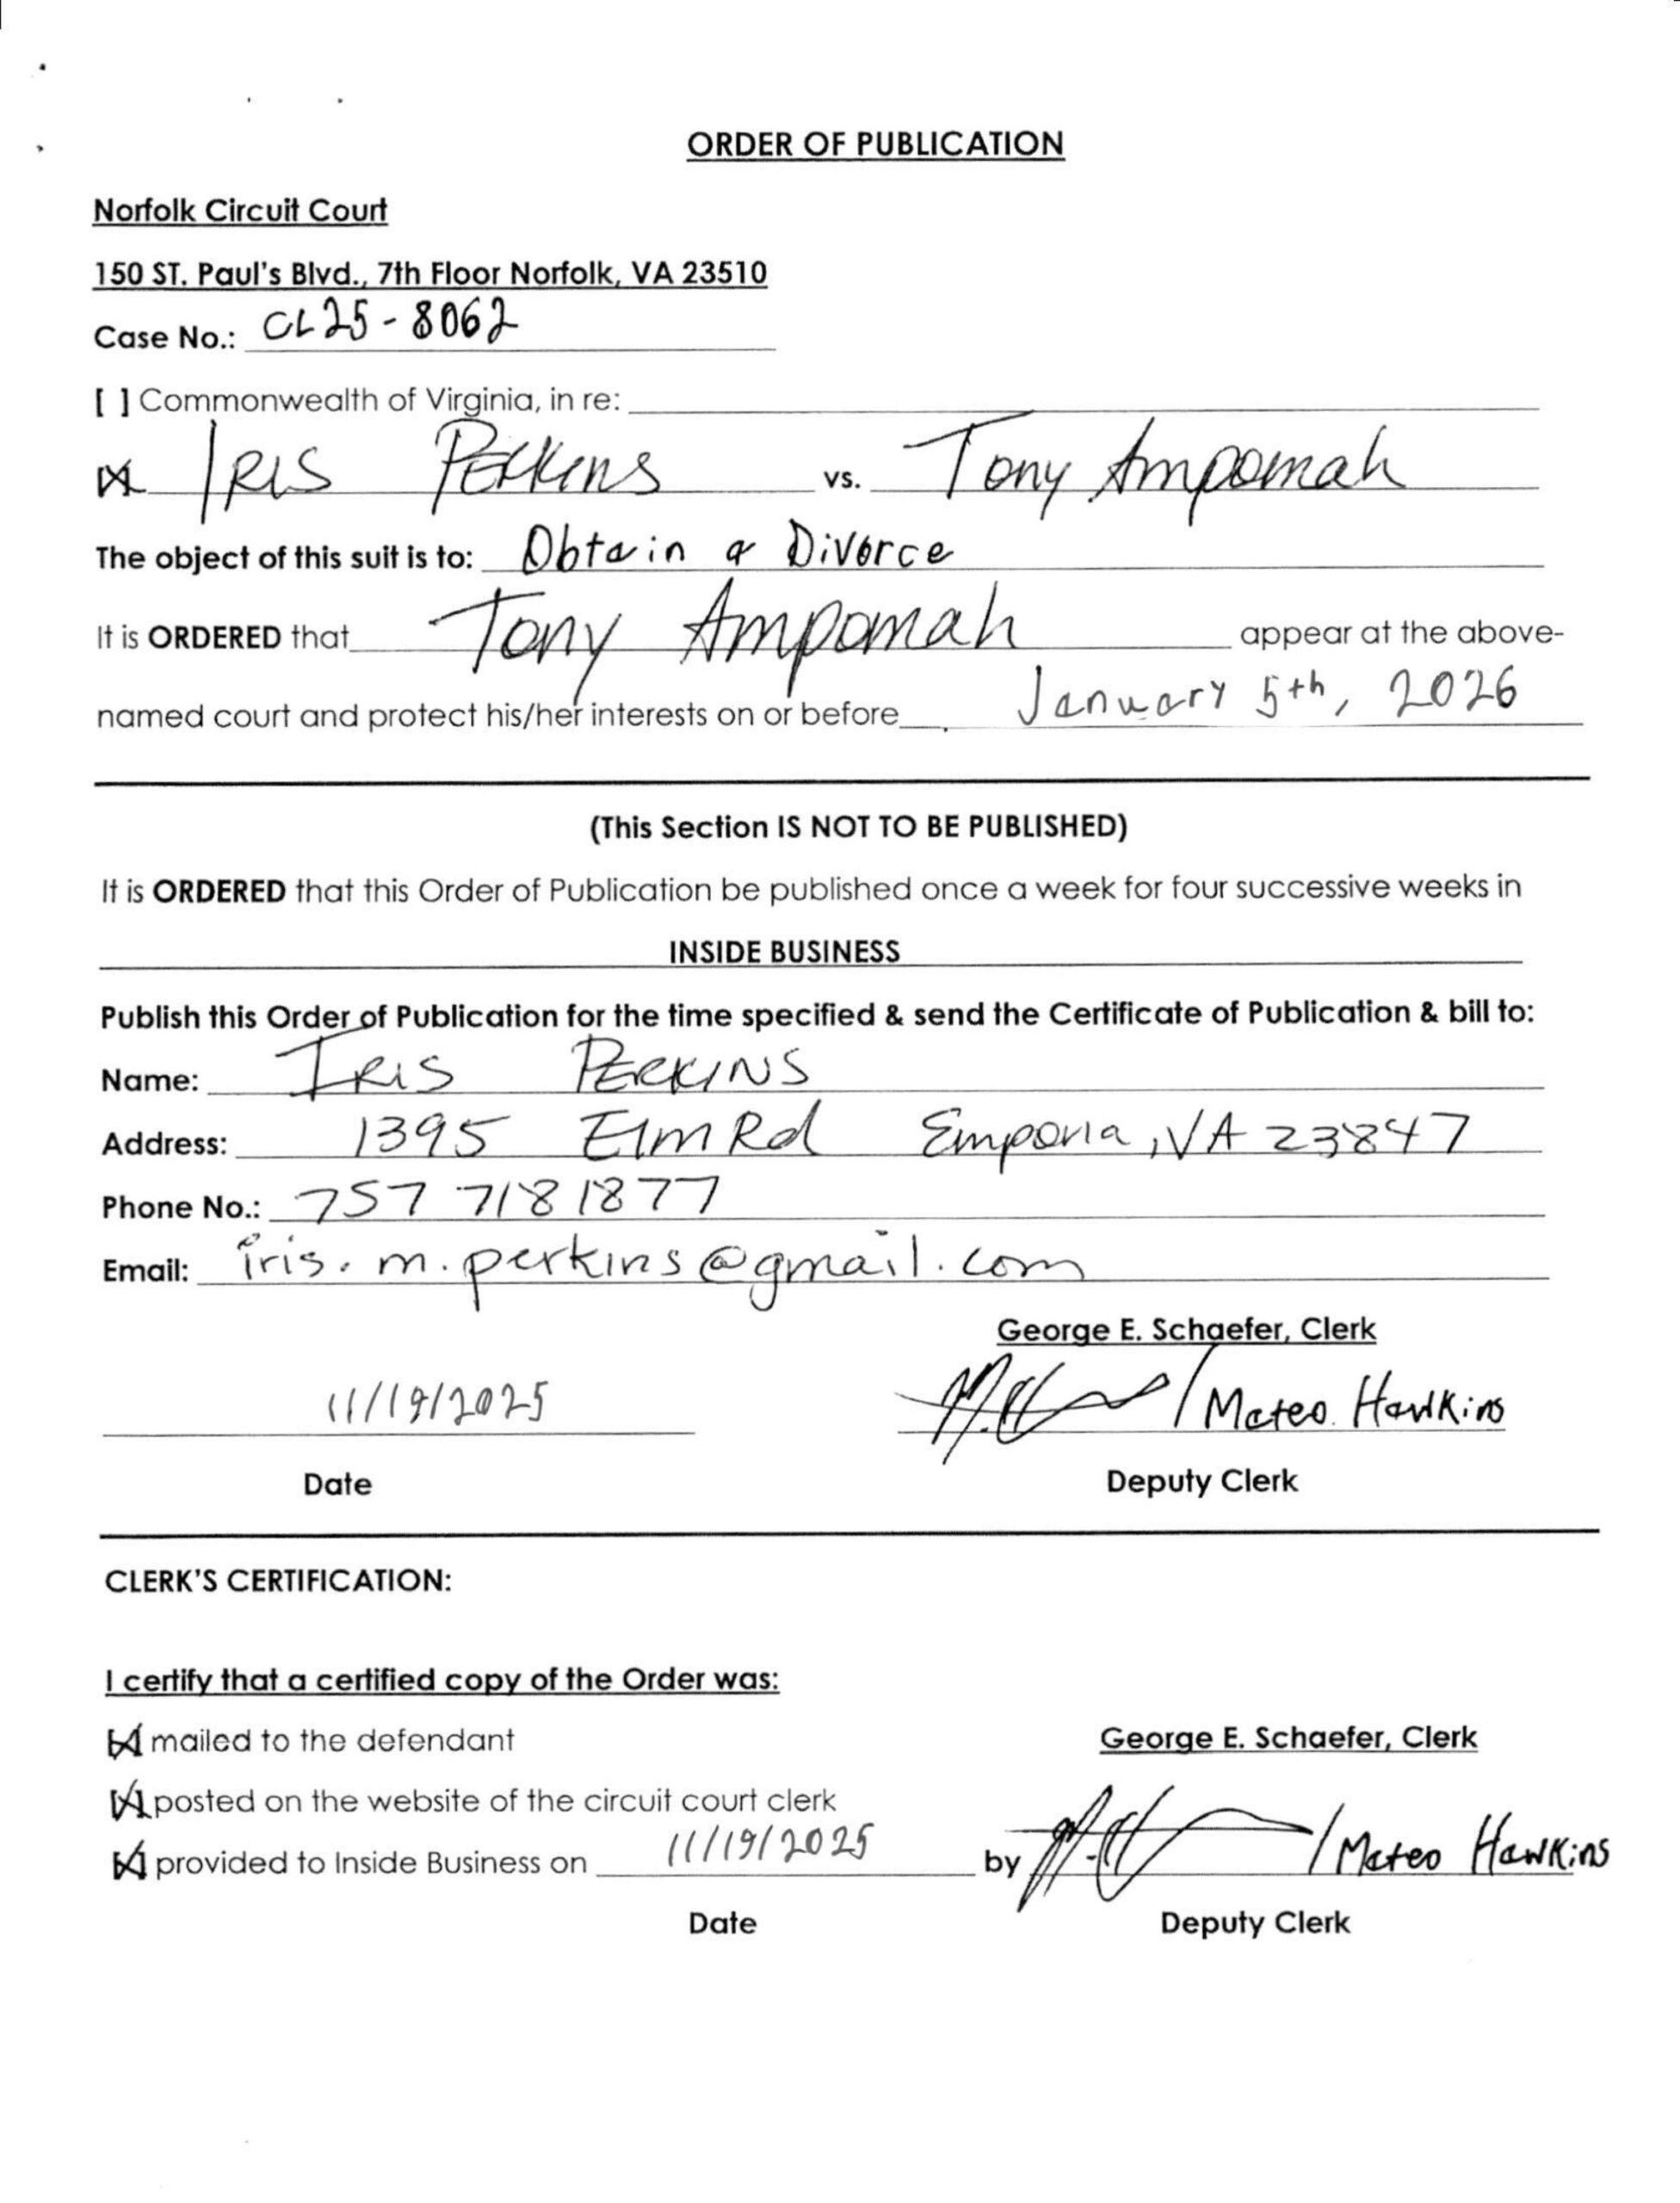 ORDER OF PUBLICATION
Norfolk Circuit Court
150 ST. Paul's Blvd., 7th Floor Norfolk, VA 23510
Case No.: CL25-8062
[ ] Commonwealth of Virginia, in re:
[X] IRIS Perkins vs. Tony Ampomah
The object of this suit is to: Obtain a Divorce
It is ORDERED that Tony Ampomah appear at the above-
named court and protect his/her interests on or before January 5th, 2026
(This Section IS NOT TO BE PUBLISHED)
It is ORDERED that this Order of Publication be published once a week for four successive weeks in
INSIDE BUSINESS
Publish this Order of Publication for the time specified & send the Certificate of Publication & bill to:
Name: IRIS PERKINS
Address: 1395 Elm Rd Emporia, VA 23847
Phone No.: 757 718 1877
Email: iris.m.perkins@gmail.com
George E. Schaefer, Clerk
11/19/2025 / Mateo Hawkins
Date Deputy Clerk
CLERK'S CERTIFICATION:
I certify that a certified copy of the Order was:
[X] mailed to the defendant George E. Schaefer, Clerk
[X] posted on the website of the circuit court clerk
[X] provided to Inside Business on 11/19/2025 by / Mateo Hawkins
Date Deputy Clerk